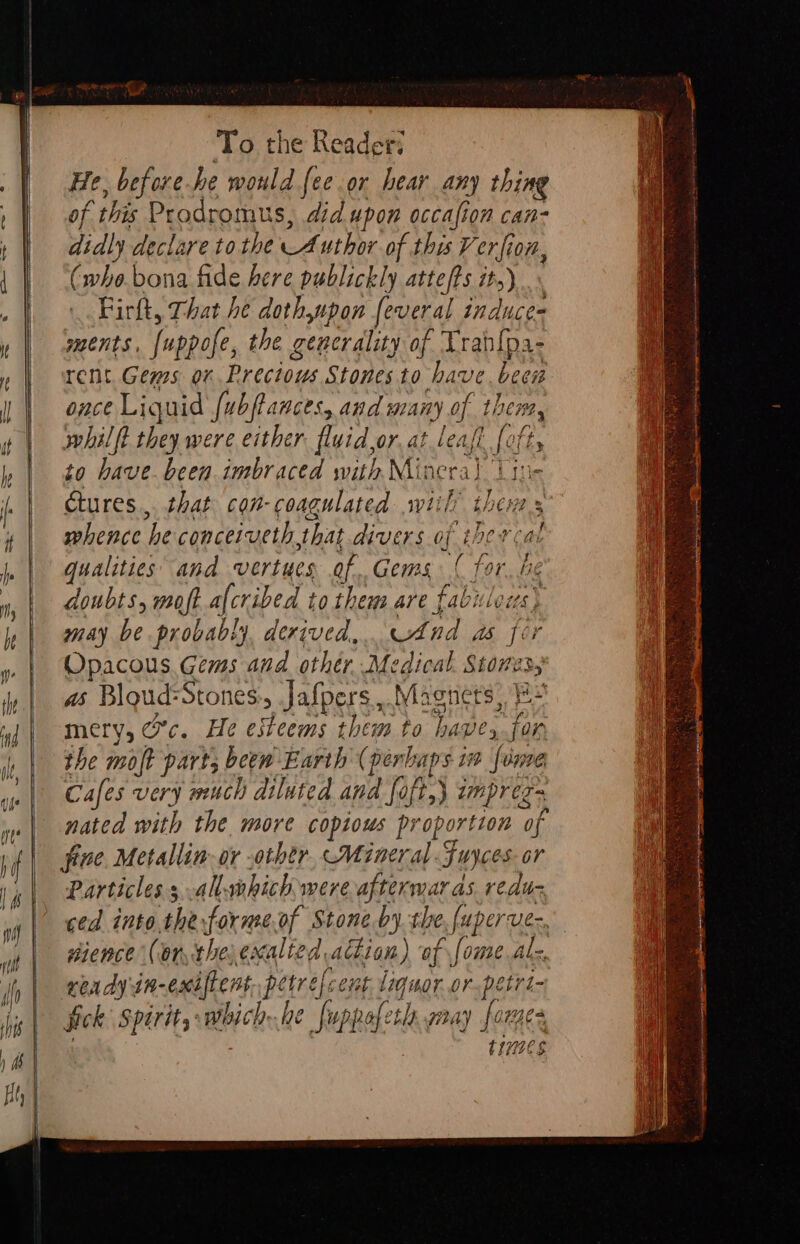 To the Reader.
He, before he would ſee or hear any thing
of this Prodromus, did upon occaſion can-
didly declare to the Author of this Verſion,
(who bona fide here publickly atteſts it,)
Firſt, That he doth, upon ſeveral induce-
ments, ſuppoſe, the generality of Tranſpa-
rent Gems or Precious Stones to have been
once Liquid ſubſtances, and many of them,
whilſt they were either fluid, or at leaſt ſoft,
to have been imbraced with Mineral Tin-
ctures, that con-coagulated with them;
whence he conceiveth, that divers of the real
qualities and vertues of Gems (for he
doubts, moſt aſcribed to them are fabulous)
may be probably derived. And as for
Opacous Gems and other Medical Stones,
as Bloud-Stones, Jaſpers, Magnets, E-
mery, &c. He esteems them to have, for
the moſt part, been Earth (perhaps in ſome
Caſes very much diluted and ſoft,) impreg-
nated with the more copious proportion of
fine Metallin or other Mineral Juyces or
Particles; all which were afterwards redu-
ced into the forme of Stone by the ſuperve-
nience (or the exalted action) of ſome al-
ready in-exiſtent petreſcent liquor or petri-
fick Spirit, which he ſuppoſeth may ſome-
times